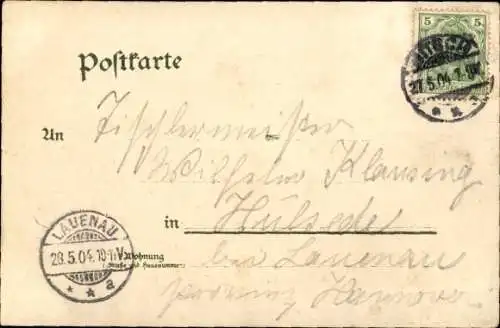 5 5
27.5.04.7-8N.
Postkarte
An Tischlermeister
Wilhelm Klausing
in Hülsede
LAUENAU
28.5.04.10-11V.
* * a
Wohnung
(Straße und Hausnummer)
bei Lauenau
Provinz Hannover